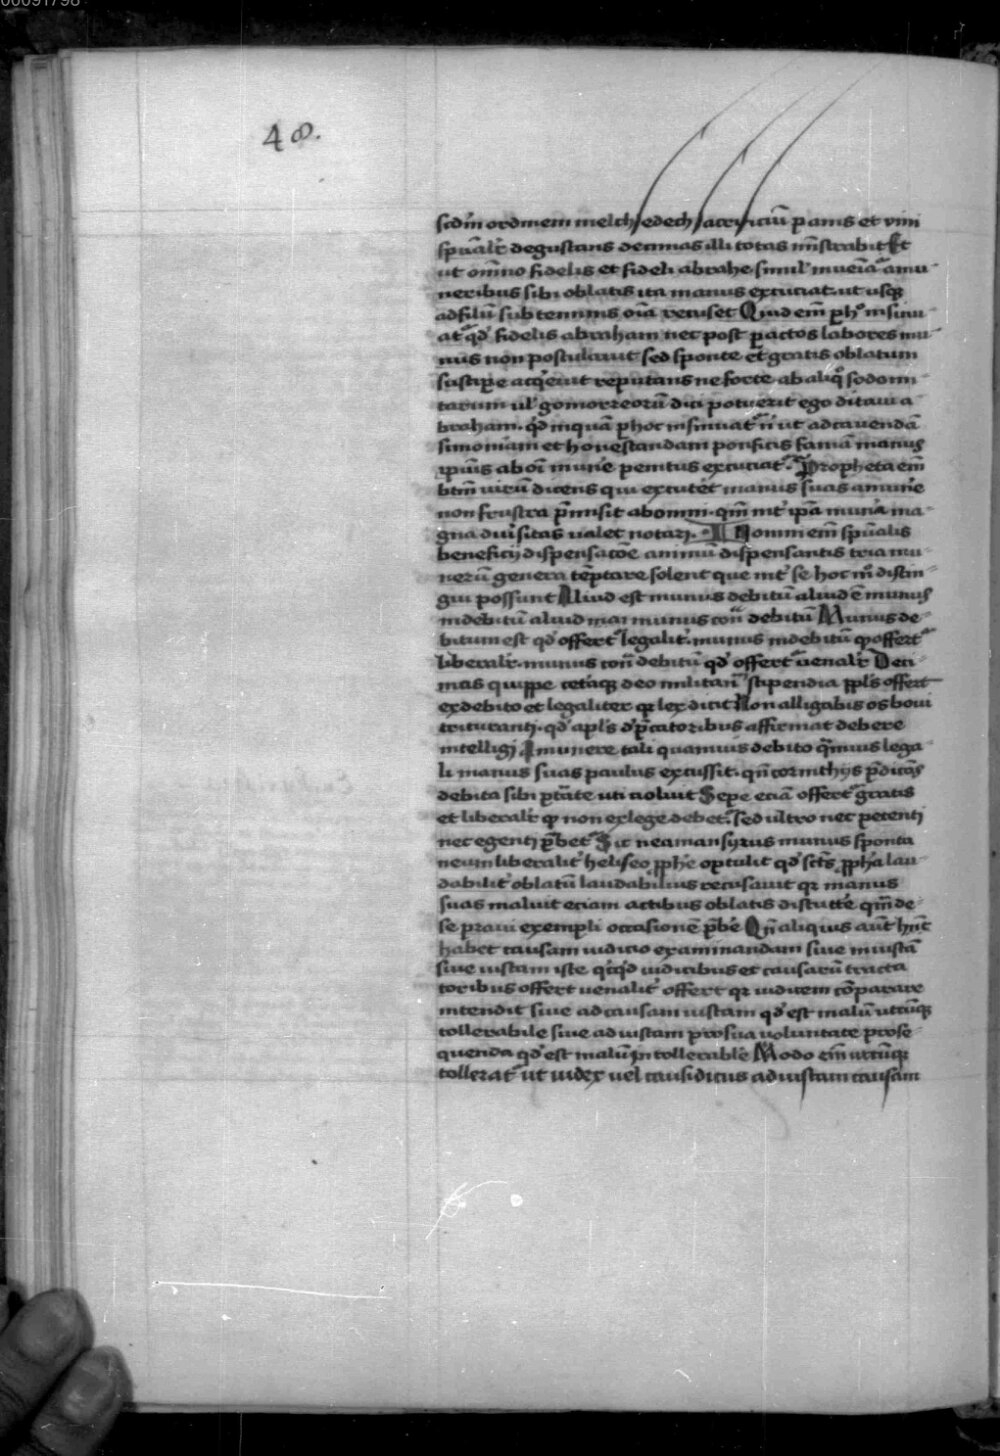 00091798
48.
scdm ordinem melchisedech sacrificiū panis et vini
spūalr degustans decimas illi totas mīstrabit Et
ut omīno fidelis et fideli abrahe simul inueniat amu
neribus sibi oblatis ita manus excuciat ut usq
ad filū subteminis oīa recuset Quid em p hoc insinu
at qd fidelis abraham nec post pactos labores mu
nus non postulauit sed sponte et gratis oblatum
suscipe acqeuit reputans ne forte ab aliqo sodomi
tarum ul gomorreorū dici potuerit ego ditaui a
braham. qd inquā p hoc insinuat n ut ad cauendā
simoniam et honestandam pontificis famā manus
ipius ab oī mune penitus excuciat. Propheta em
btm uirū dicens qui excutet manus suas a mune
non frustra pmisit ab omni. qm int ipa muna ma
gna duisitas ualet notari. Nomm em spūalis
beneficij dispensacōe animū dispensantis tria mu
nerū genera tēptare solent que int se hoc mo distin
gui possunt Aliud est munus debitū aliud ē munus
indebitū aliud mai munus con debitū Munus de
bitum est qd offert legalit. munus indebitū qd offert
liberalr. munus con debitū qd offert uenalr Deci
mas quippe ceteraq deo militant stipendia ppls offert
ex debito et legaliter qr lex dicit Non alligabis os boui
trituranti. qd apls d pdicatoribus affirmat debere
intelligi A munere tali quamuis debito qmuis lega
li manus suas paulus excussit. qn corinthijs pdicās
debita sibi ptāte uti noluit Sepe eciā offert gratis
et liberalr qd non ex lege debet. sed ultro nec petenti
nec egenti pbet Sic neaman syrus munus sponta
neum liberalit heliseo pphe optulit qd scts ppha lau
dabilit oblatū laudabilius recusauit qr manus
suas maluit eciam a cibus oblatis discutte qm de
se praui exempli occasionē pbe Qn aliquis aut hnt
habet causam iudicio examinandam siue iniustā
siue iustam iste qcqd iudicibus et causarū tracta
toribus offert uenalit offert qr iudicem cōparare
intendit siue ad causam iustam qd est malū utcūq
tollerabile siue ad iustam pro sua uoluntate prose
quenda qd est malū intollerabile Modo em utcūq
tollerat ut iudex uel causidicus ad iustam causam